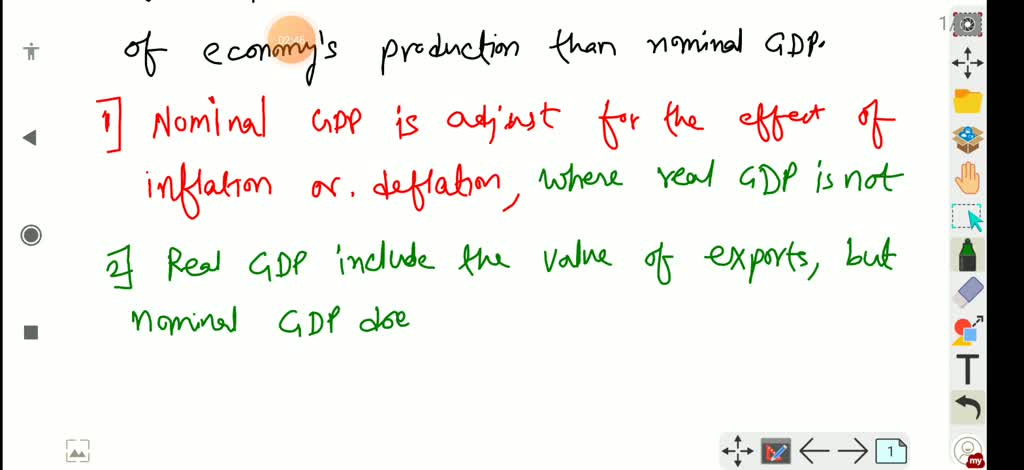 of economy's production than nominal GDP.
1] Nominal GDP is adjust for the effect of
inflation or. deflation, where real GDP is not
2] Real GDP include the value of exports, but
nominal GDP doe
02:46
1
T
1
my